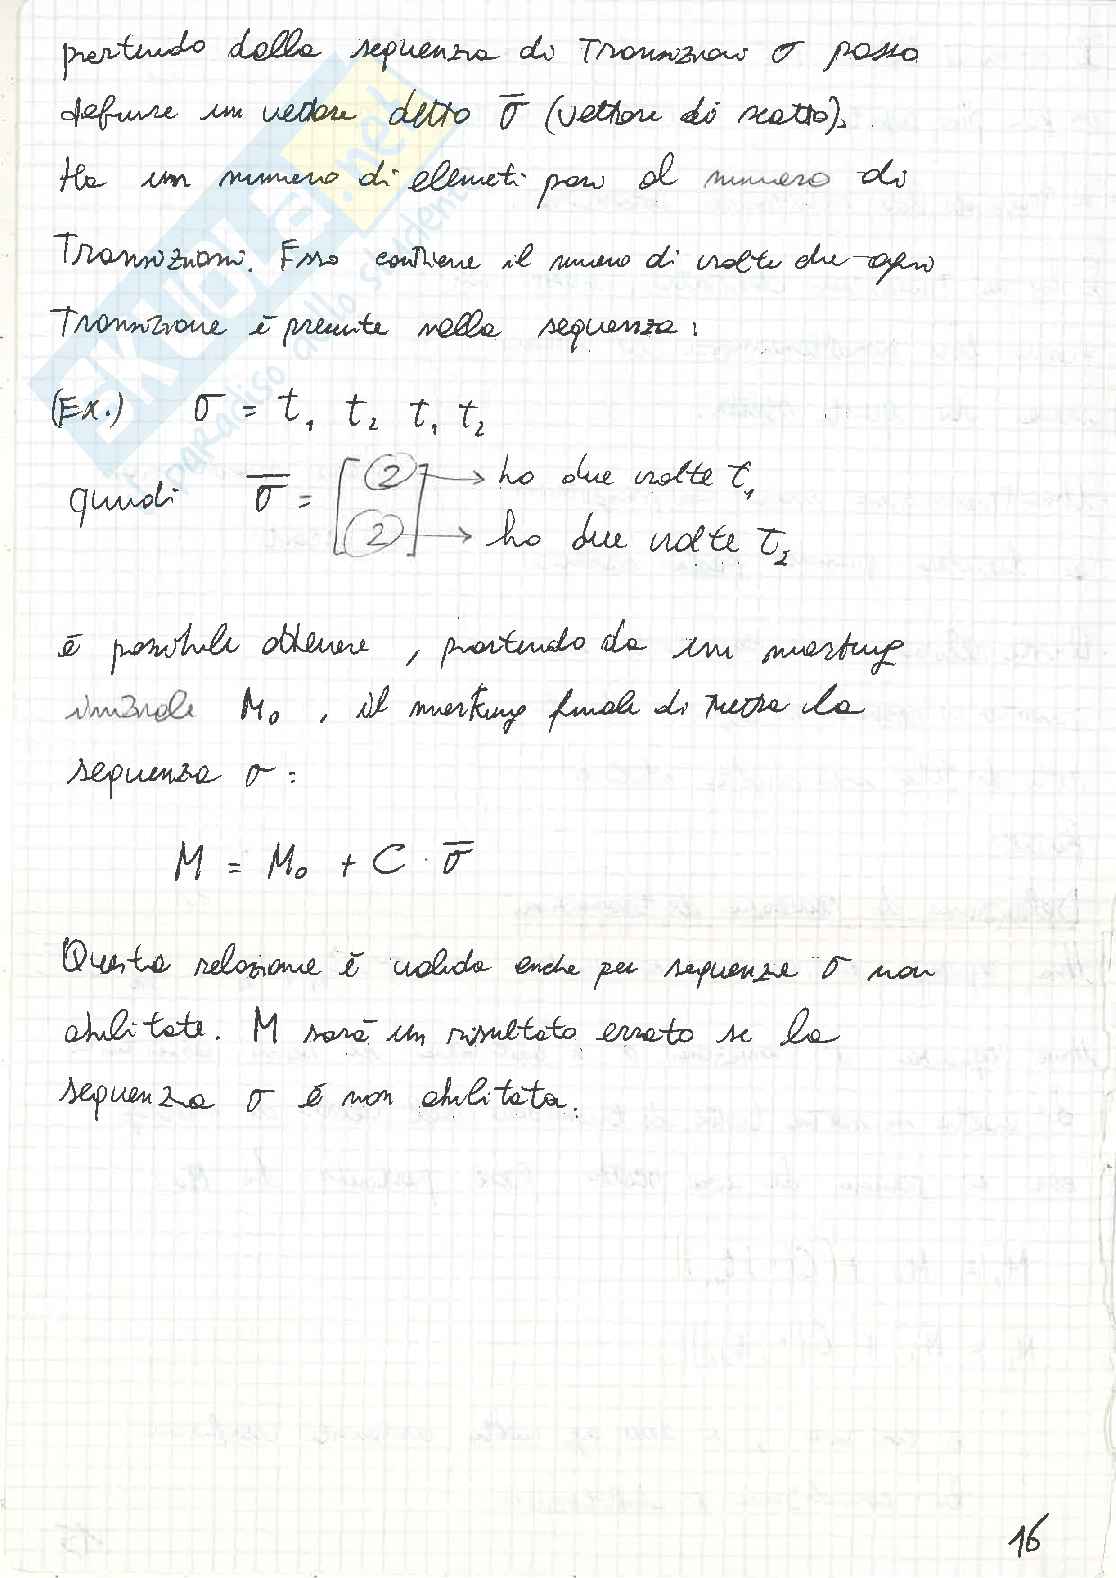 partendo dalla sequenza di Transizioni σ posso
definire un vettore detto σ̅ (vettore di scatto).
Ha un numero di elemeti pari al numero di
Transizioni. Esso contiene il numero di volte che ogni
Transizione è presente nella sequenza:
(Ex.) σ = t₁ t₂ t₁ t₂
quindi σ̅ = [ 2 → ho due volte t₁
2 ] → ho due volte t₂
è possibile ottenere, partendo da un marking
iniziale M₀, il marking finale di tutta la
sequenza σ:
M = M₀ + C · σ̅
Questa relazione è valida anche per sequenze σ non
abilitate. M sarà un risultato errato se la
sequenza σ è non abilitata.
16
SKUOLA.net
il paradiso dello studente